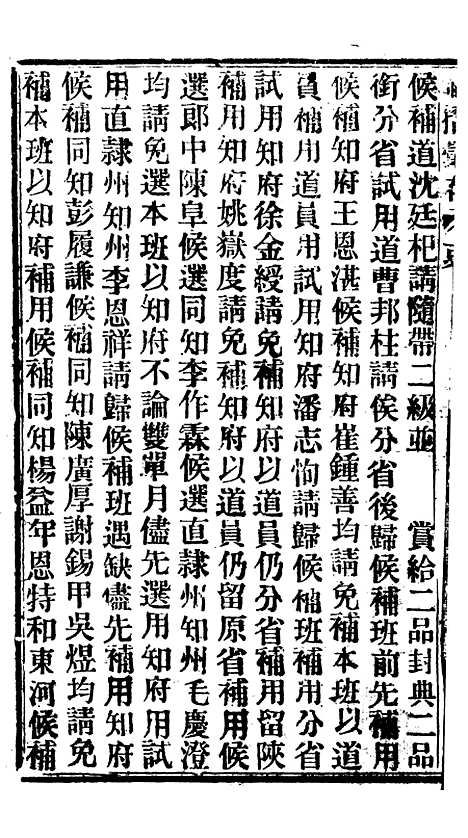 候補道沈廷杞請隨帶二級並　賞給二品封典二品
銜分省試用道曹邦柱請俟分省後歸候補班前先補用
候補知府王恩湛候補知府崔鍾善均請免補本班以道
員補用道員用試用知府潘志恂請歸候補班補用分省
試用知府徐金綬請免補知府以道員仍分省補用留陝
補用知府姚嶽度請免補知府以道員仍留原省補用候
選郎中陳阜候選同知李作霖候選直隸州知州毛慶澄
均請免選本班以知府不論雙單月儘先選用知府用試
用直隸州知州李恩祥請歸候補班遇缺儘先補用知府
候補同知彭履謙候補同知陳廣厚謝錫甲吳煜均請免
補本班以知府補用候補同知楊益年恩特和東河候補